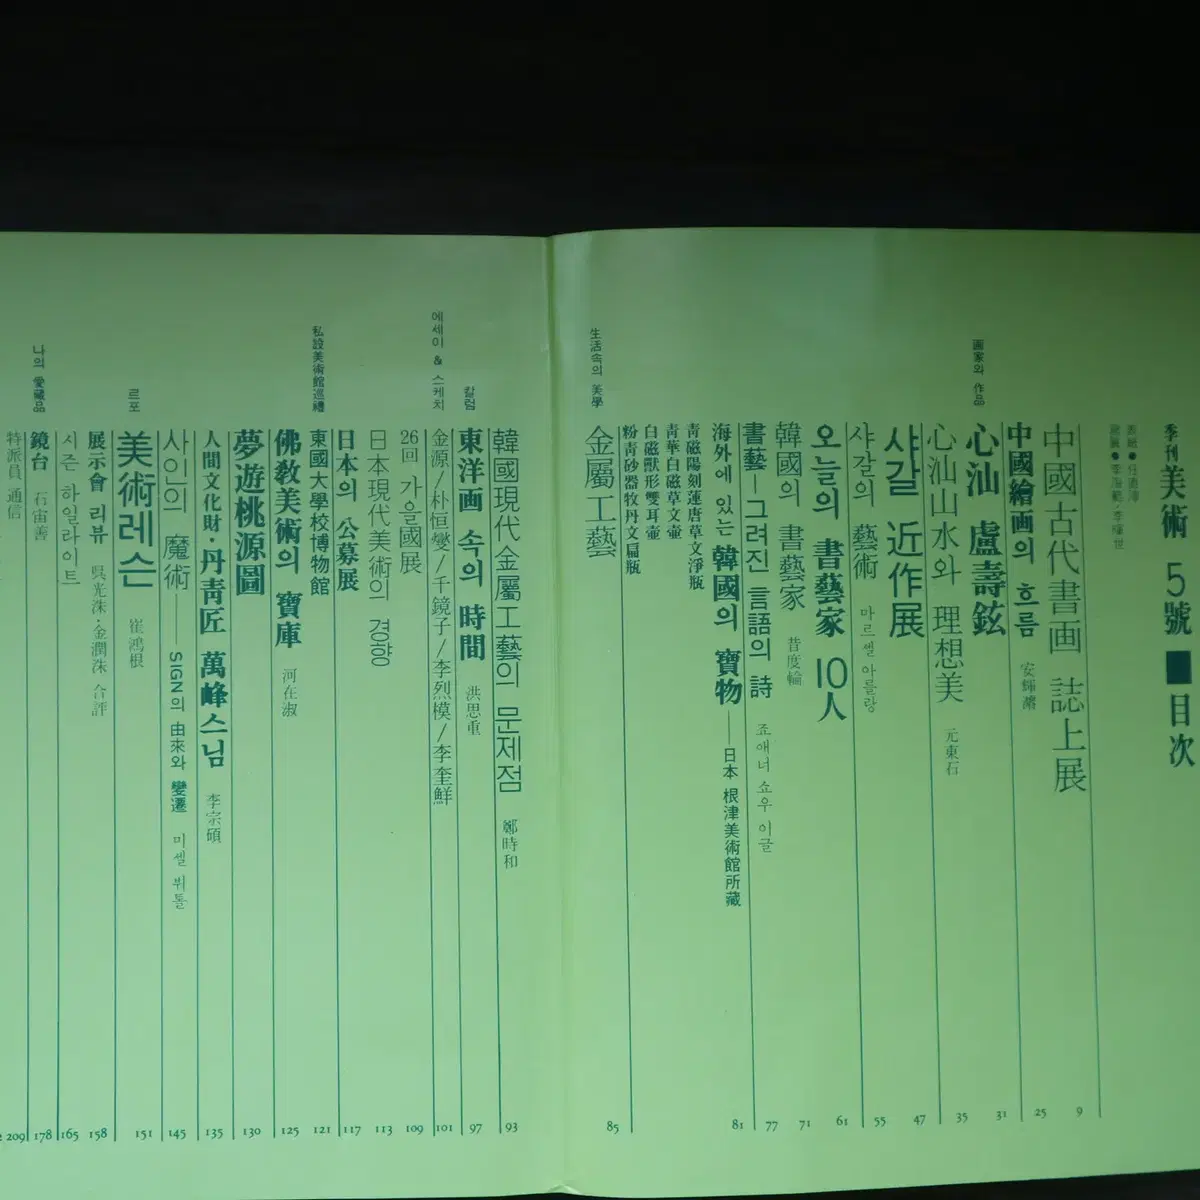 季刊 美術 5號 ■ 目次
表紙●任
中國古代書画 誌上展
9
中國繪画의 흐름 安輝濬
25
画家와 作品
心汕 盧壽鉉
31
心汕山水와 理想美 元東石
35
샤갈 近作展
47
샤갈의 藝術 마르셀 아를랑
55
오늘의 書藝家 10人
61
韓國의 書藝家 昔度輪
71
書藝—그려진 言語의 詩 죠애너 쇼우 이글
77
海外에 있는 韓國의 寶物—日本 根津美術館所藏
81
靑磁陽刻蓮唐草文淨瓶
靑華白磁草文壷
白磁獸形雙耳壷
粉靑砂器牧丹文扁瓶
生活속의 美學
金屬工藝
85
韓國現代金屬工藝의 문제점 鄭時和
93
칼럼
東洋画 속의 時間 洪思重
97
에세이 & 스케치
金源/朴恒燮/千鏡子/李烈模/李奎鮮
101
26回 가을國展
109
日本現代美術의 경향
113
日本의 公募展
117
私設美術館巡禮
東國大學校博物館
121
佛敎美術의 寶庫 河在淑
125
夢遊桃源圖
130
人間文化財·丹靑匠 萬峰스님 李宗碩
135
사인의 魔術—SIGN의 由來와 變遷 미셸 뷔톨
145
르포
美術레슨 崔鴻根
151
展示會 리뷰 吳光洙·金潤洙 合評
158
시즌 하일라이트
165
나의 愛藏品
鏡台 石宙善
178
特派員 通信
209